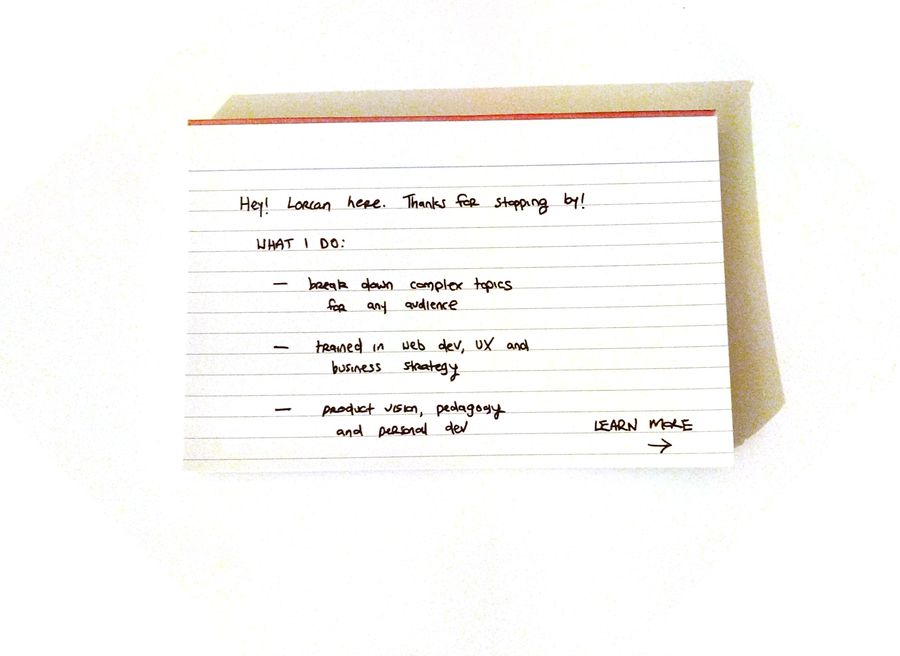 Hey! Lorcan here. Thanks for stopping by!
WHAT I DO:
— break down complex topics
for any audience
— trained in web dev, UX and
business strategy
— product vision, pedagogy
and personal dev
LEARN MORE
→